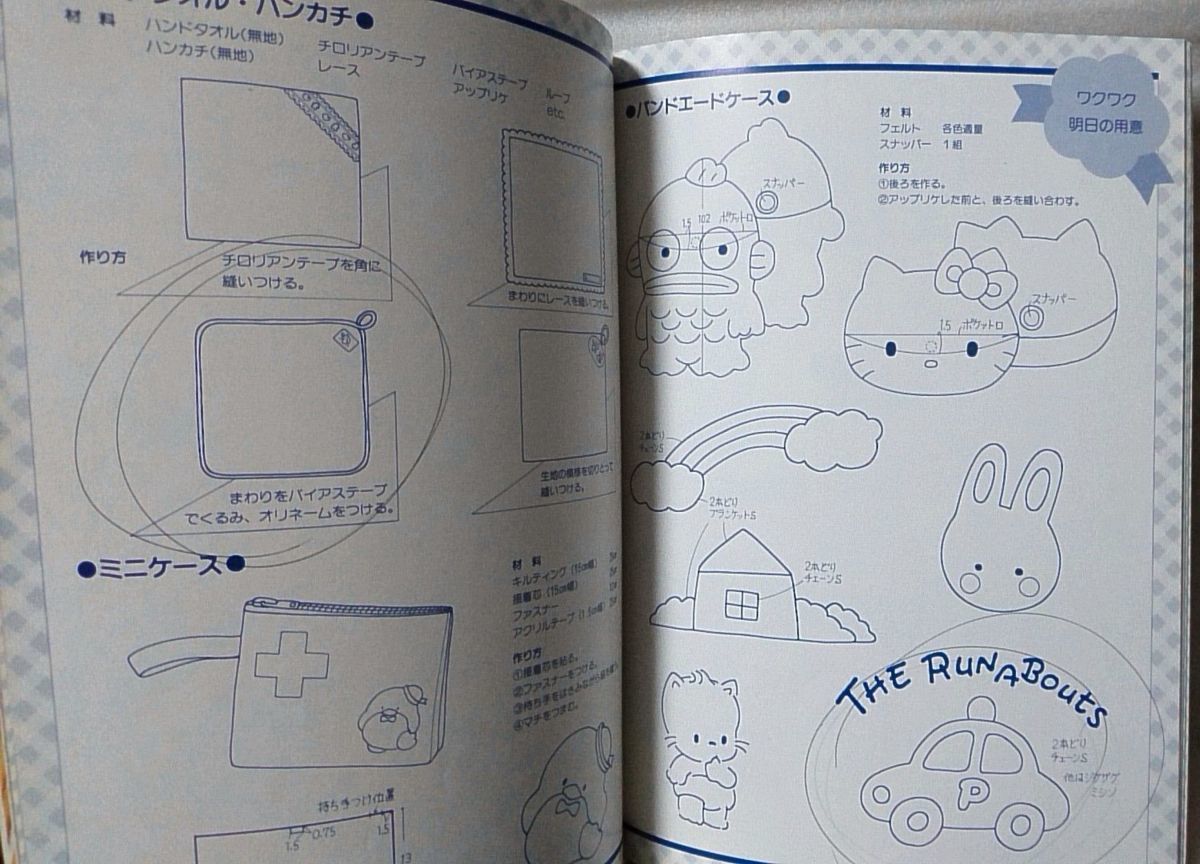 オル・ハンカチ●
材料
ハンドタオル(無地)
ハンカチ(無地)
チロリアンテープ
レース
バイアステープ
アップリケ
ループ
etc.
作り方
チロリアンテープを角に
縫いつける。
まわりにレースを縫いつける。
まわりをバイアステープ
でくるみ、オリネームをつける。
生地の模様を切りとって
縫いつける。
●ミニケース●
材料
キルティング(15cm幅)
接着芯(15cm幅)
ファスナー
アクリルテープ(1.5cm幅)
作り方
①接着芯を貼る。
②ファスナーをつける。
③持ち手をはさみながら
④マチをつまむ。
持ち手つけ位置
0.75
1.5
1.5
13
●バンドエードケース●
材料
フェルト 各色適量
スナッパー 1組
作り方
①後ろを作る。
②アップリケした前と、後ろを縫い合わす。
ワクワク
明日の用意
スナッパー
1.5
ポケット口
スナッパー
1.5
ポケット口
2本どり
チェーンS
2本どり
ブランケットS
2本どり
チェーンS
THE RUNABOUTS
P
2本どり
チェーンS
他はジグザグ
ミシン